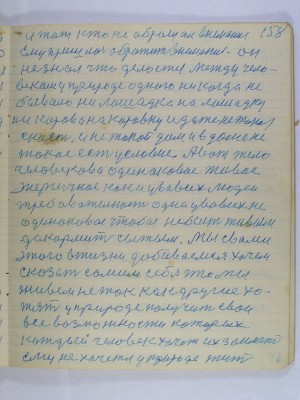 и тот кто не обращал внимания 158
ему пришлос обратит внимание. он
не знал что делоется между чело-
веком у природе одного никогда не
бывало ни лошадка на лошадку
ни корова на коровку и даже не
снаст, и не такой дом и в доме не
такое ест условие. А вот тело
человеческа одинаковое живое
энергичное как и у всех людей
требователност одна у всех не
одинаковое чтобы не быт живым
а кормит сытым. Мы с вами
этого в жизни добиваемся хочем
сказат самим себя это мы
живем не так как другие хо-
тят у природе получит свои
все возможности которых
каждый человек хочет их
ему не хочется у природе жит